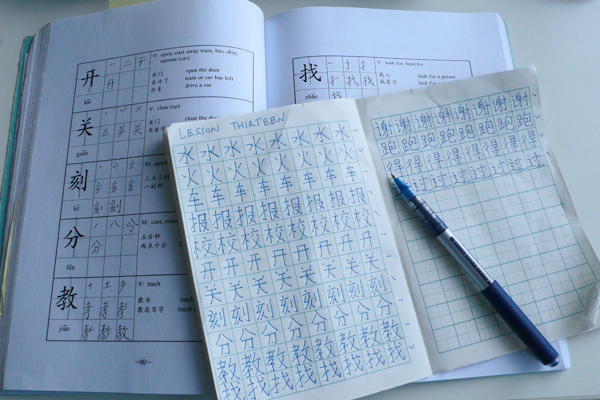 开
kāi
V: open, start away train, bus, ship,
operate (car)
开门 open the door
车开了 train or car has left
开车 drive a car
关
guān
V: close (up)
关门 close the door
刻
kè
分
fēn
三分钟
两点十分
教
jiāo
V: teach
教书 teach
教我写字 teach
~90~
找
zhǎo
V: look for, hunt for
找人 look for a person
LESSON THIRTEEN
水水水水水水水水
火火火火火火火火
车车车车车车车车
报报报报报报报报
校校校校校校校校
开开开开开开开开
关关关关关关关关
刻刻刻刻刻刻刻刻
分分分分分分分分
教教教教教教教教
找找找找找找找找
谢谢谢谢谢谢谢
跑跑跑跑跑跑跑
得得得得得得得
过过过过过过过